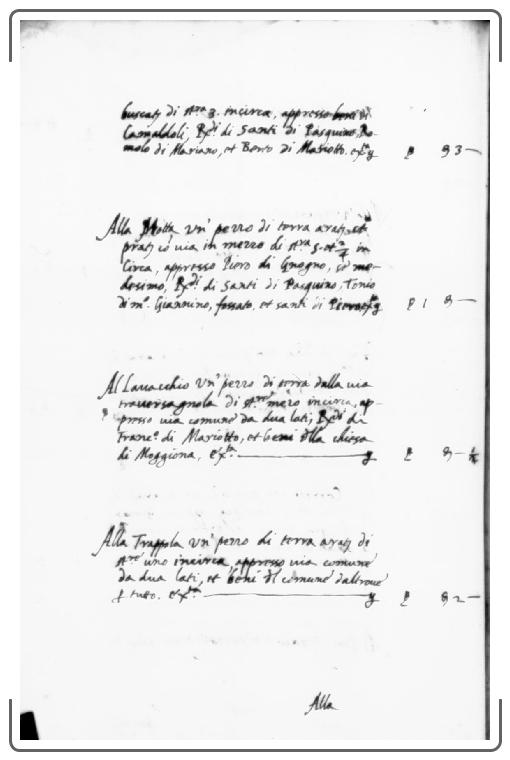 buscatj di st.ra 3. incirca, appresso beni di
Camaldoli, Rx.di di Santi di Pasquino, Ro-
molo di Mariano, et Berto di Mariotto. etx.ta
Alla Motta un' pezzo di terra aratj. et
pratj. cō via in mezzo di st.ra 5. et 2/4 in
Circa, appresso Piero di Gnogno, sè me-
desimo, Rx.di di Santi di Pasquino, Tonio
di m.o Giannino, fossato, et santi di
Al Lavacchio un' pezzo di terra dalla via
traversagnola di st.ro mezo incirca, ap-
presso via comune da dua lati, Rx.di di
Franc.o di Mariotto, et beni della chiesa
di Moggiona, etx.ta
Alla Trappola un' pezzo di terra aratj di
st.ro uno incirca, appresso via comune
da dua lati, et beni del comune daltrove
p tutto. etx.ta
Alla